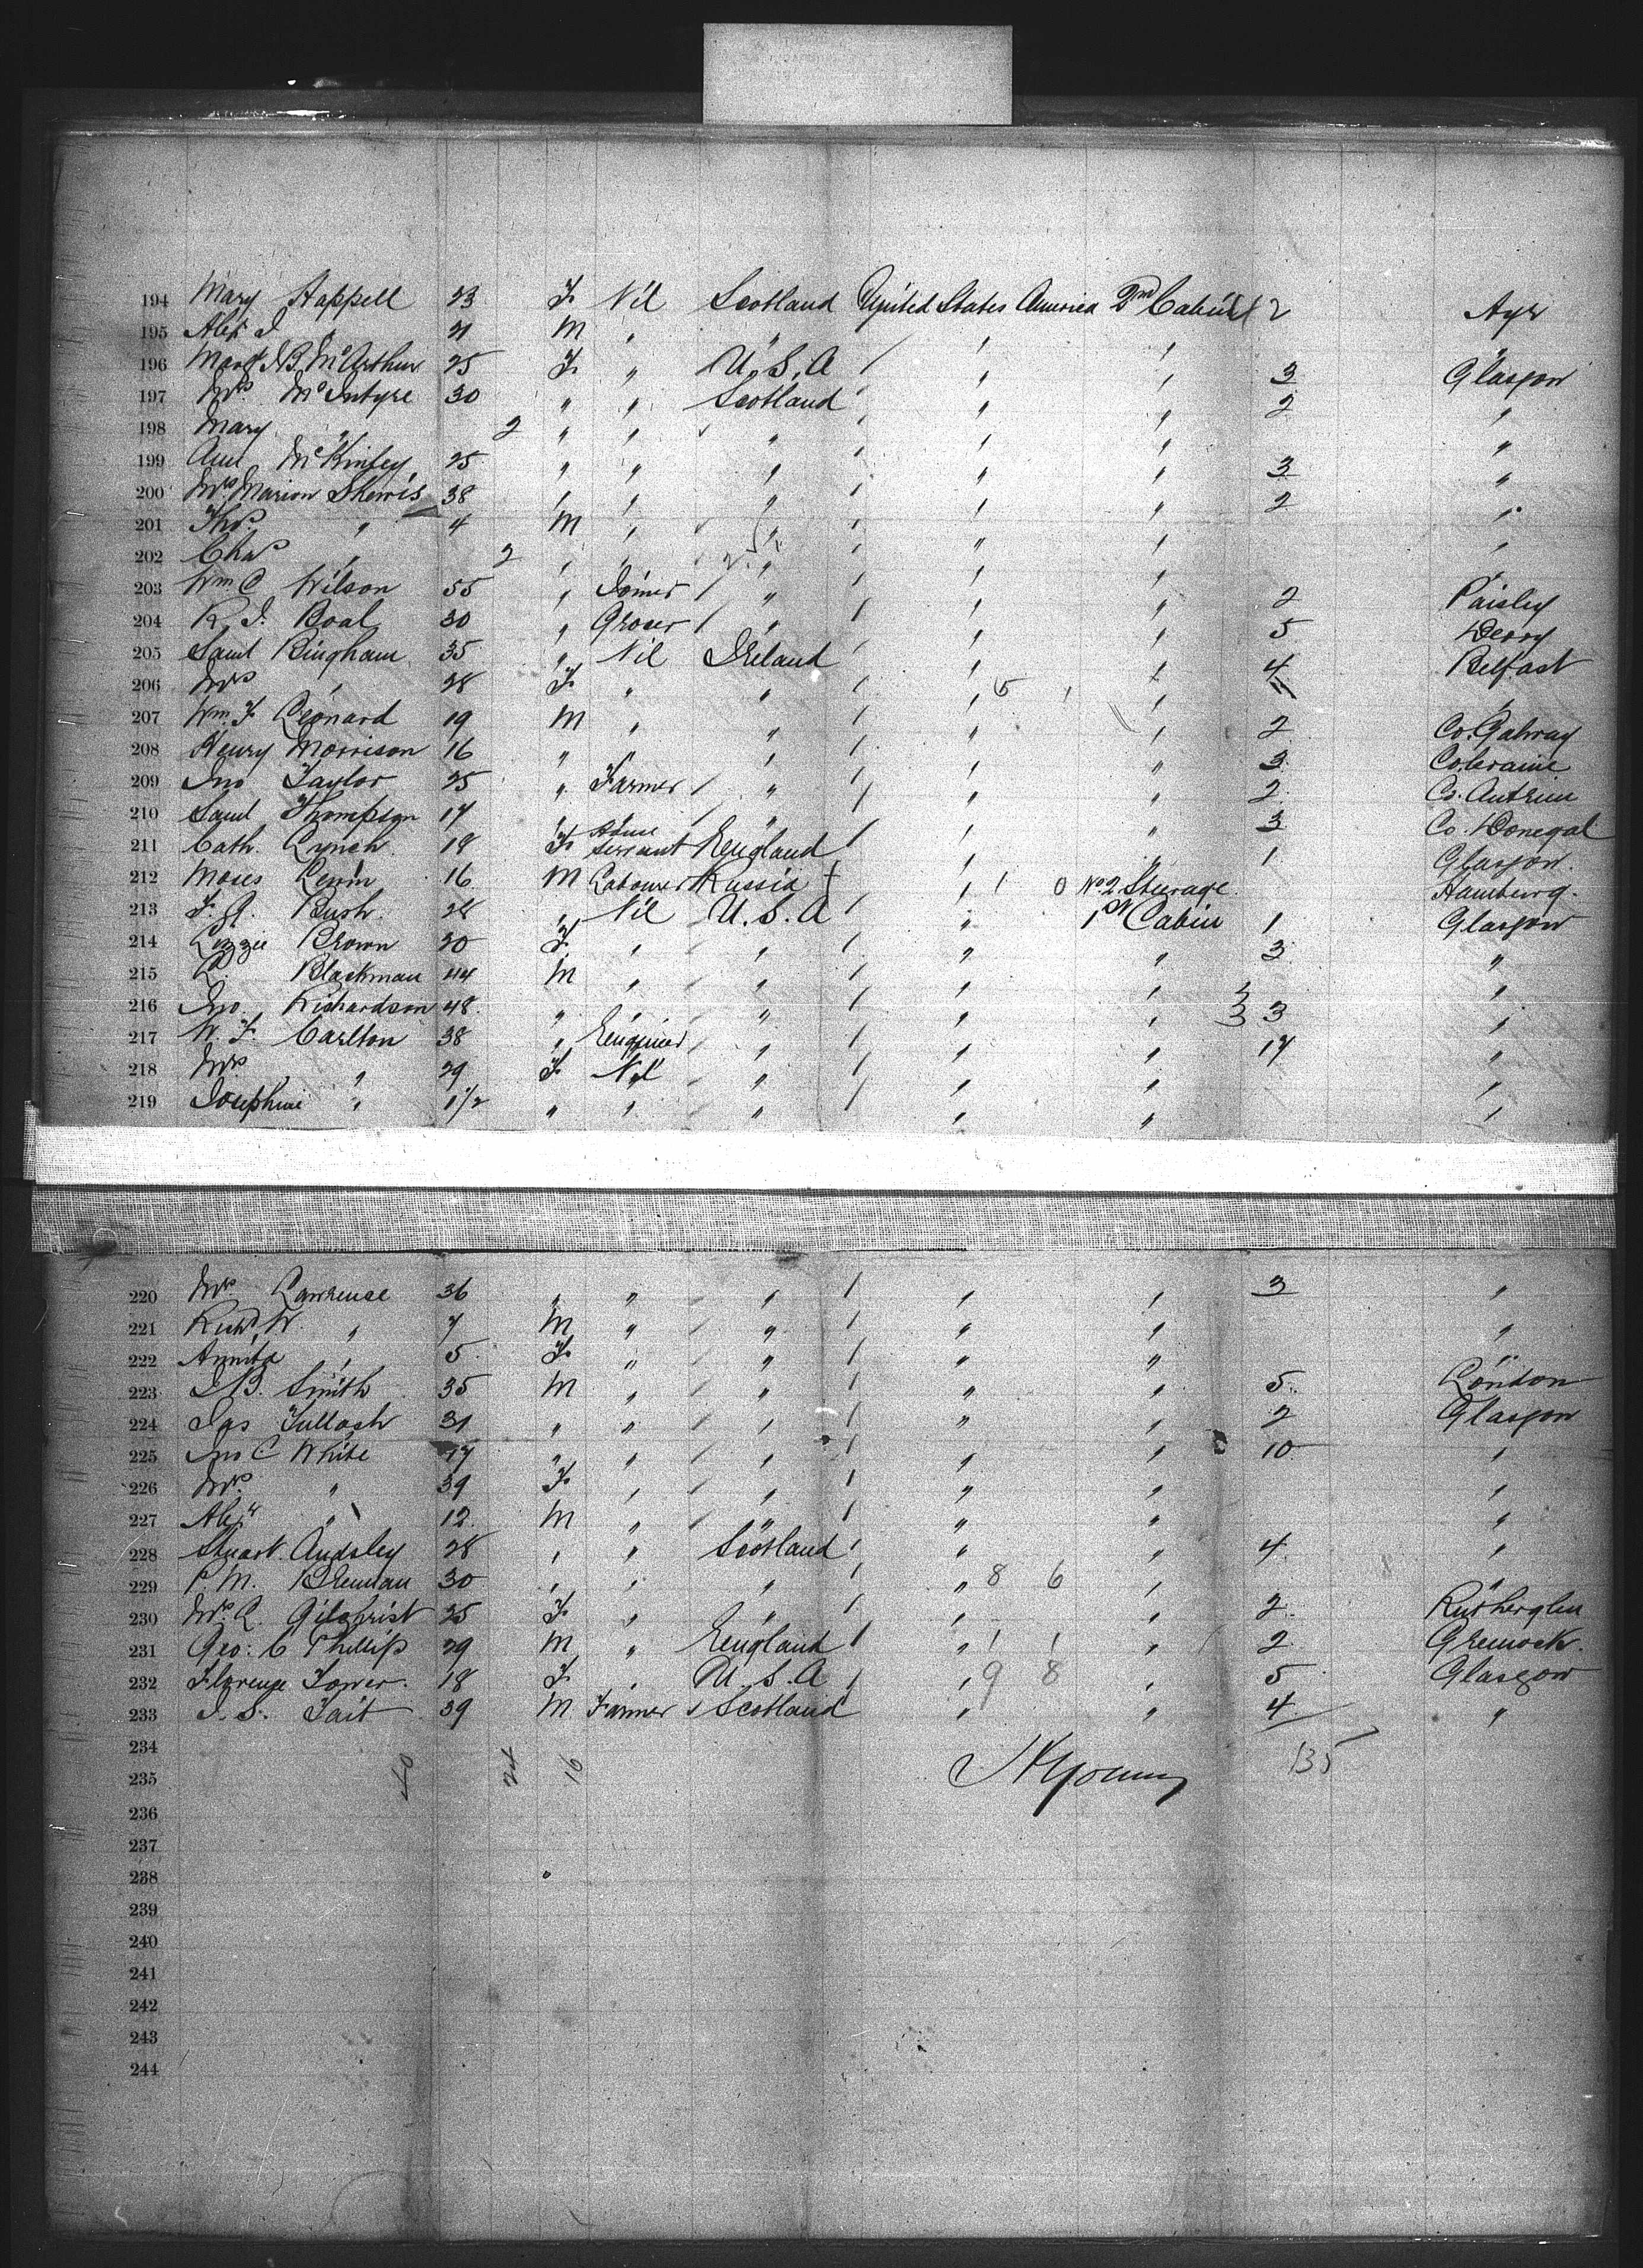 194 Mary Happell 23 F. Nil Scotland United States America 2nd Cabin 2 Ayr
195 Alex J. " 21 M " " " " "
196 Margt B. McArthur 25 F. " U.S.A " " 3 Glasgow
197 Mrs McIntyre 30 " " Scotland " " 2 "
198 Mary " 2 " " " " " "
199 Ann McKinley 25 " " " " " 3 "
200 Mrs Marion Sherris 38 " " " " " 2 "
201 Thos. " 4 M " " " " "
202 Chas " 2 " " " " " "
203 Wm. C Wilson 55 " Joiner " " " 2 Paisley
204 R. J. Boal 30 " Grocer " " " 5 Derry
205 Saml Bingham 35 " Nil Ireland " " 4 Belfast
206 Mrs " 28 F. " " " 5 " "
207 Wm. F Leonard 19 M " " " " 2 Co. Galway
208 Henry Morrison 16 " " " " " 3 Coleraine
209 Jno Taylor 25 " Farmer " " " 2 Co. Antrim
210 Saml Thompson 17 " " " " " 3 Co. Donegal
211 Cath. Lynch 18 F. House Servant England " " 1 Glasgow
212 Moses Levin 16 M Labourer Russia " 1 0 No 2 Steerage Hamburg.
213 F. A. Bush 28 " Nil U.S.A " 1st Cabin 1 Glasgow
214 Lizzie Brown 20 F. " " " " 3 "
215 R. Blackman 44 M " " " " "
216 Jno. Richardson 48 " " " " " 3 "
217 W. F. Carlton 38 " Engineer " " " 17 "
218 Mrs " 29 F Nil " " " "
219 Josephine " 1 1/2 " " " " " "
220 Mrs Lawrence 36 " " " " " 3 "
221 Richd W. " 7 M " " " " "
222 Annita " 5 F. " " " " "
223 J B. Smith 35 M " " " " 5 London
224 Jas Tulloch 31 " " " " " 2 Glasgow
225 Jno C White 47 " " " " " 10 "
226 Mrs. " 39 F. " " " " "
227 Alexr " 12 M " " " " "
228 Stuart Audsley 28 " " Scotland " " 4 "
229 P. M. Brennan 30 " " " " 8 6 " "
230 Mrs. A. Gilchrist 25 F. " " " " 2 Rutherglen
231 Geo. C Phillips 29 M " England " 1 1 " 2 Greenock.
232 Florence Tower 18 F. " U.S.A " 9 8 5 Glasgow
233 J. S. Tait 39 M Farmer Scotland " " 4 "
234
235 40 24 16 135
236
237
238
239
240
241
242
243
244